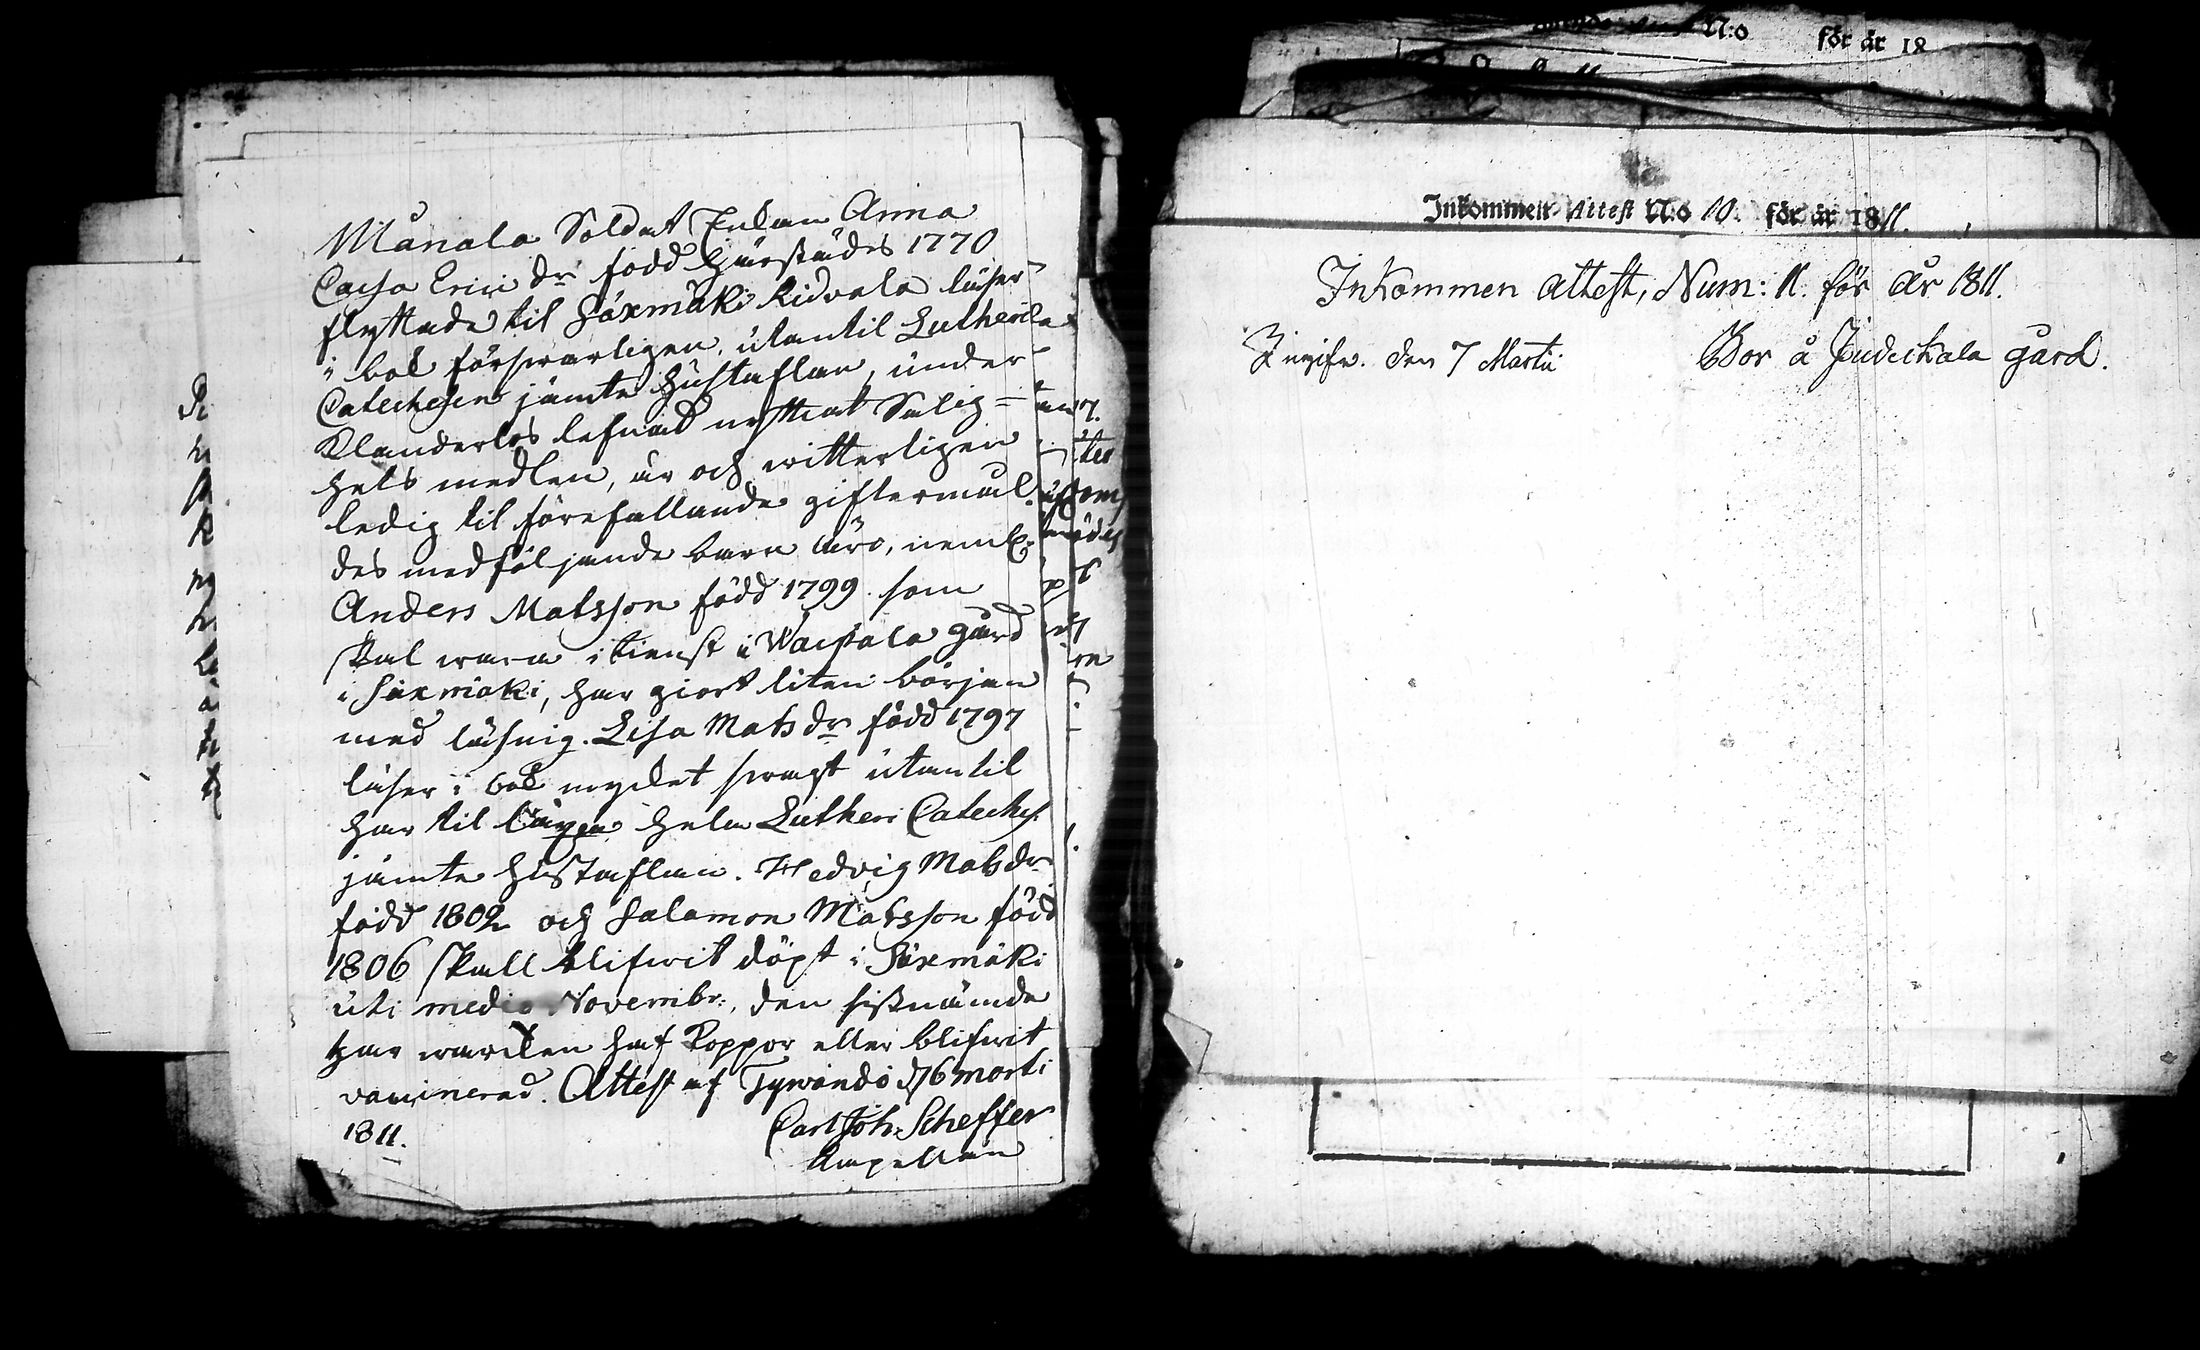 Månala Soldat Enkan Anna
Caisa Erici dr född härstädes 1770
flyttade til Säxmäki Ridvala läser
i bok försvarligen, utantil Lutheri
Catechesen jämte hustaflan, under
Klanderlös lefnad nyttjat Salig=
hets medlen, är och witterligen
ledig til förefallande giftermål.
des medföljande barn äro, neml:
Anders Matsson född 1799 som
skal wara i tienst i Waisala gård
i Säxmäki, har giort liten början
med läsnig. Lisa Mats dr född 1797
läser i bok mycket swagt utantil
har til hela Lutheri Cateches.
jämte hustaflan. Hedvig Mats dr
född 1802 och Salamon Matsson född
1806 skall blifwit döpt i Säxmäki
uti medio Novembr:, den sistnämde
har warcken haf Koppor eller blifwit
vaccinerad. Attest af Tywändö d 6 marti
1811.
Carl Joh: Scheffer
Capellan
N:o för år 18
Inkommen Attest N:o 10. för år 1811.
Inkommen Attest, Num: 11. för År 1811.
Ingifv. den 7 Martii
Bor å Judickala gård.